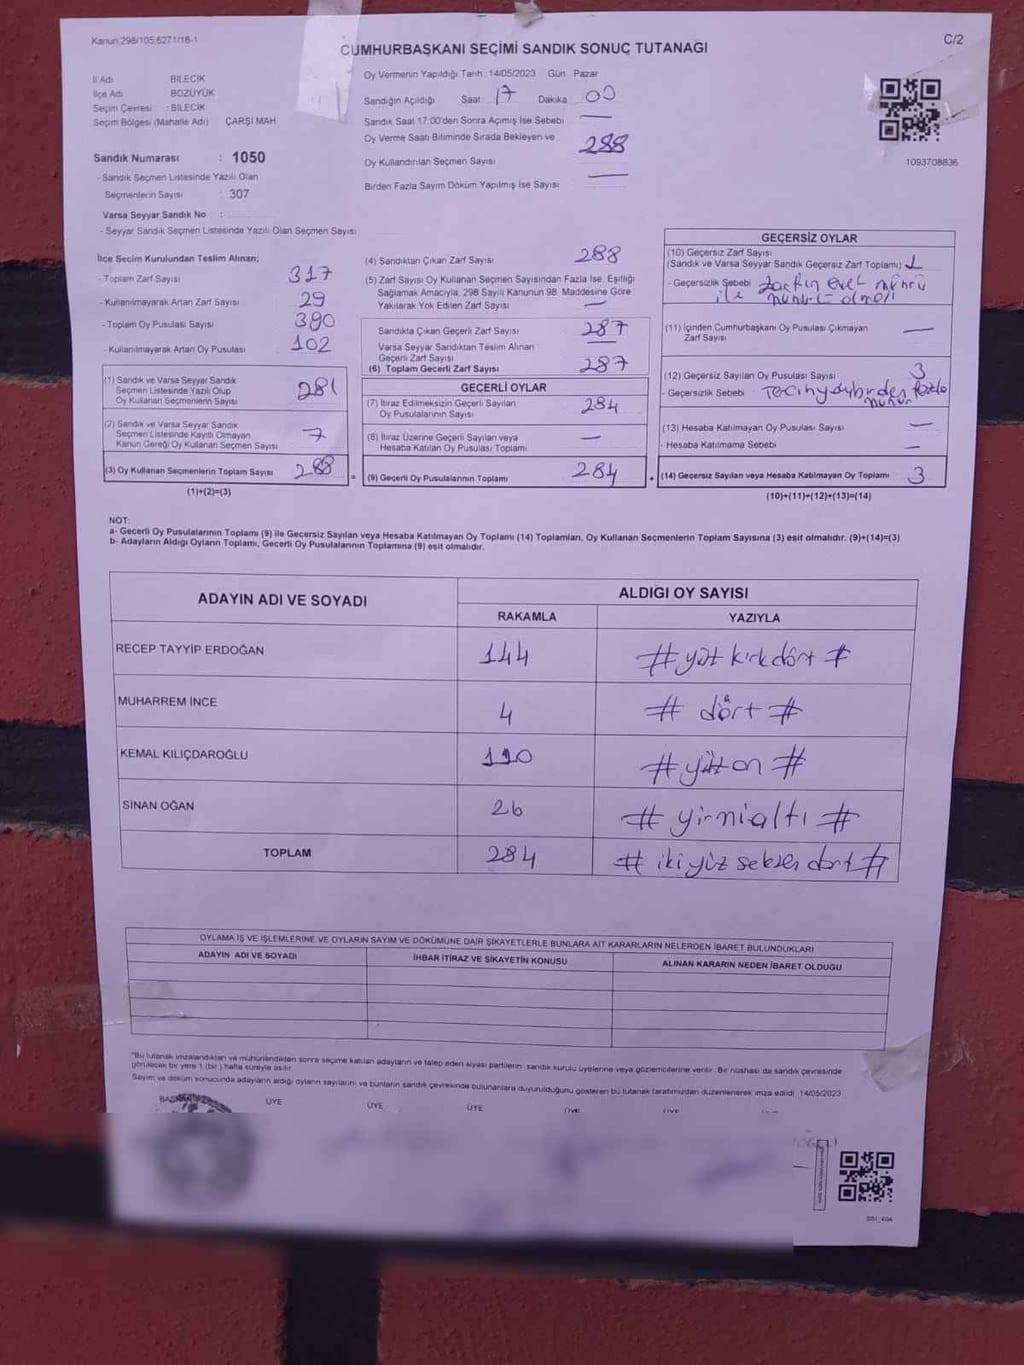 Kanun:298/105;6271/16-1
C/2
CUMHURBAŞKANI SEÇİMİ SANDIK SONUÇ TUTANAĞI
İl Adı BİLECİK
İlçe Adı BOZÜYÜK
Seçim Çevresi : BİLECİK
Seçim Bölgesi (Mahalle Adı) ÇARŞI MAH.
Sandık Numarası : 1050
- Sandık Seçmen Listesinde Yazılı Olan
Seçmenlerin Sayısı : 307
Varsa Seyyar Sandık No :
- Seyyar Sandık Seçmen Listesinde Yazılı Olan Seçmen Sayısı
Oy Vermenin Yapıldığı Tarih :14/05/2023 Gün Pazar
Sandığın Açıldığı Saat 17 Dakika 00
Sandık Saat 17:00'den Sonra Açımış İse Sebebi —
Oy Verme Saati Bitiminde Sırada Bekleyen ve
Oy Kullandırılan Seçmen Sayısı 288
Birden Fazla Sayım Döküm Yapılmış İse Sayısı —
1093708836
İlçe Seçim Kurulundan Teslim Alınan;
- Toplam Zarf Sayısı 317
- Kullanılmayarak Artan Zarf Sayısı 29
- Toplam Oy Pusulası Sayısı 390
- Kullanılmayarak Artan Oy Pusulası 102
(1) Sandık ve Varsa Seyyar Sandık
Seçmen Listesinde Yazılı Olup
Oy Kullanan Seçmenlerin Sayısı 281
(2) Sandık ve Varsa Seyyar Sandık
Seçmen Listesinde Kayıtlı Olmayan
Kanun Gereği Oy Kullanan Seçmen Sayısı 7
(3) Oy Kullanan Seçmenlerin Toplam Sayısı 288
(1)+(2)=(3)
(4) Sandıktan Çıkan Zarf Sayısı 288
(5) Zarf Sayısı Oy Kullanan Seçmen Sayısından Fazla İse, Eşitliği
Sağlamak Amacıyla, 298 Sayılı Kanunun 98. Maddesine Göre
Yakılarak Yok Edilen Zarf Sayısı —
Sandıkta Çıkan Geçerli Zarf Sayısı 287
Varsa Seyyar Sandıktan Teslim Alınan
Geçerli Zarf Sayısı —
(6) Toplam Gecerli Zarf Sayısı 287
GEÇERLİ OYLAR
(7) İtiraz Edilmeksizin Geçerli Sayılan
Oy Pusulalarının Sayısı 284
(8) İtiraz Üzerine Geçerli Sayılan veya
Hesaba Katılan Oy Pusulaları Toplamı —
(9) Geçerli Oy Pusulalarının Toplamı 284
GEÇERSİZ OYLAR
(10) Geçersiz Zarf Sayısı
(Sandık ve Varsa Seyyar Sandık Geçersiz Zarf Toplamı) 1
- Geçersizlik Sebebi Zarfın evet mührü
ile
(11) İçinden Cumhurbaşkanı Oy Pusulası Çıkmayan
Zarf Sayısı —
(12) Geçersiz Sayılan Oy Pusulası Sayısı 3
- Geçersizlik Sebebi fazla
(13) Hesaba Katılmayan Oy Pusulası Sayısı —
- Hesaba Katılmama Sebebi —
(14) Geçersiz Sayılan veya Hesaba Katılmayan Oy Toplamı 3
(10)+(11)+(12)+(13)=(14)
NOT:
a- Geçerli Oy Pusulalarının Toplamı (9) ile Geçersiz Sayılan veya Hesaba Katılmayan Oy Toplamı (14) Toplamları, Oy Kullanan Seçmenlerin Toplam Sayısına (3) eşit olmalıdır. (9)+(14)=(3)
b- Adayların Aldığı Oyların Toplamı, Gecerli Oy Pusulalarının Toplamına (9) eşit olmalıdır.
ADAYIN ADI VE SOYADI ALDIĞI OY SAYISI
RAKAMLA YAZIYLA
RECEP TAYYİP ERDOĞAN 144 # yüz kırkdört #
MUHARREM İNCE 4 # dört #
KEMAL KILIÇDAROĞLU 110 # yüz on #
SİNAN OĞAN 26 # yirmialtı #
TOPLAM 284 # iki yüz seksen dört #
OYLAMA İŞ VE İŞLEMLERİNE VE OYLARIN SAYIM VE DÖKÜMÜNE DAİR ŞİKAYETLERLE BUNLARA AİT KARARLARIN NELERDEN İBARET BULUNDUKLARI
ADAYIN ADI VE SOYADI İHBAR İTİRAZ VE ŞİKAYETİN KONUSU ALINAN KARARIN NEDEN İBARET OLDUĞU
"Bu tutanak imzalandıktan ve mühürlendikten sonra seçime katılan adayların ve talep eden siyasi partilerin sandık kurulu üyelerine veya gözlemcilerine verilir. Bir nüshası da sandık çevresinde
görülecek bir yere 1 (bir) hafta süreyle asılır.
Sayım ve döküm sonucunda adayların aldığı oyların sayılarını ve bunların sandık çevresinde bulunanlara duyurulduğunu gösteren bu tutanak tarafımızdan düzenlenerek imza edildi 14/05/2023
BAŞKAN ÜYE ÜYE ÜYE ÜYE ÜYE